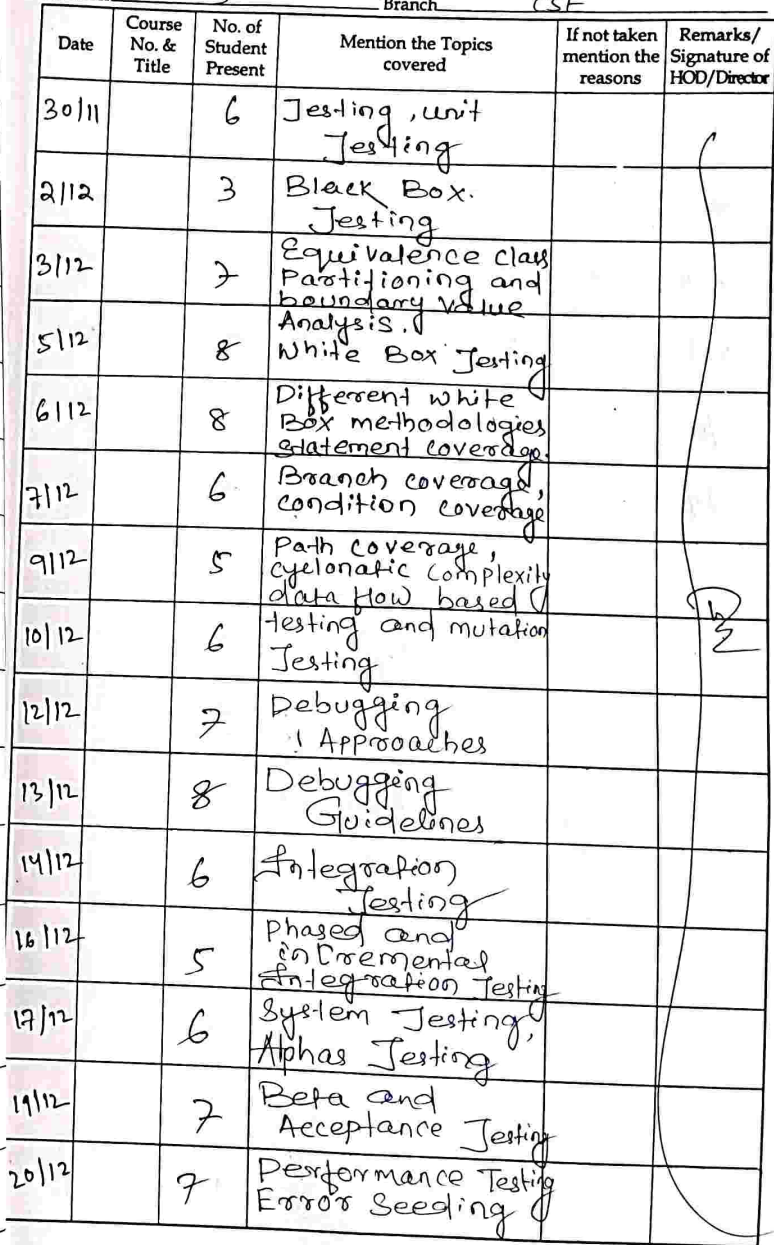 Branch CSE
Date
Course No. & Title
No. of Student Present
Mention the Topics covered
If not taken mention the reasons
Remarks/ Signature of HOD/Director
30/11 6 Testing, unit
Testing
2/12 3 Black Box.
Testing
3/12 7 Equivalence class
Partitioning and
boundary value
Analysis.
5/12 8 White Box Testing
6/12 8 Different white
Box methodologies
statement coverage.
7/12 6 Branch coverage,
condition coverage
9/12 5 Path coverage,
cyclonatic complexity
data flow based
10/12 6 testing and mutation
Testing
12/12 7 Debugging
Approaches
13/12 8 Debugging
Guidelines
14/12 6 Integration
Testing
16/12 5 phased and
incremental
Integration Testing
17/12 6 System Testing,
Alphas Testing
19/12 7 Beta and
Acceptance Testing
20/12 7 Performance Testing
Error Seeding